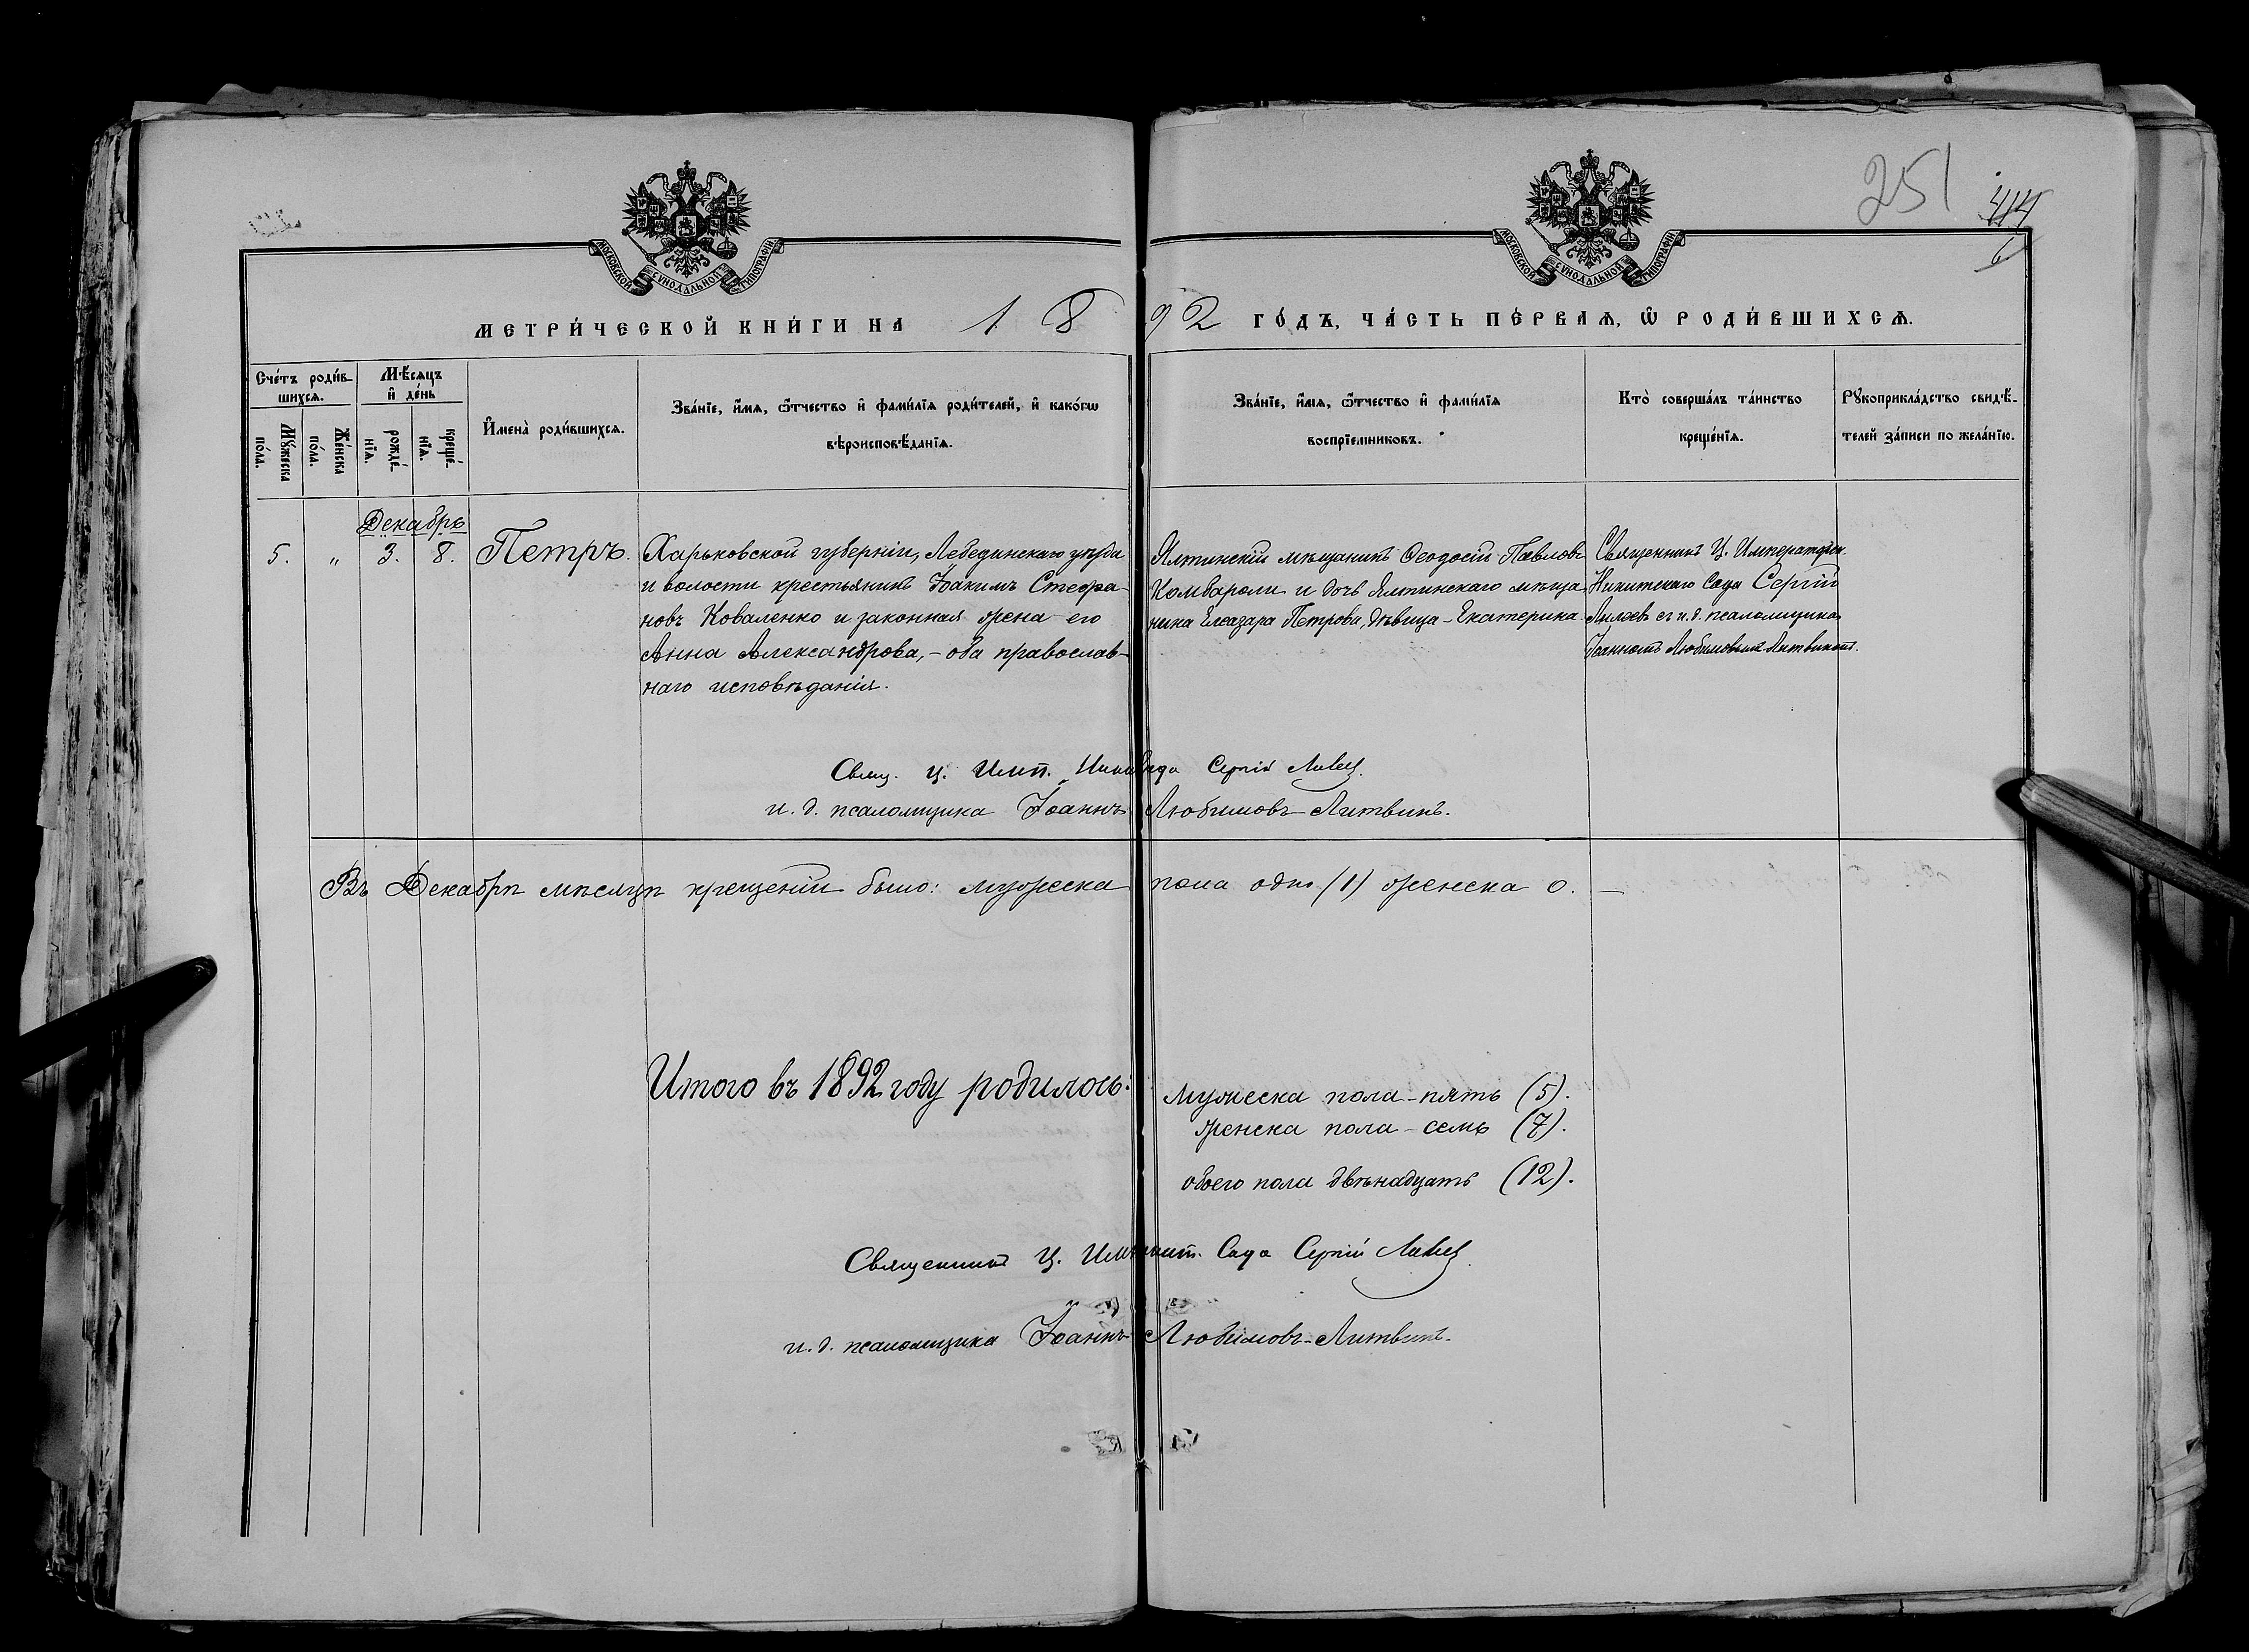 251
МОСКОВСКОЙ СѴНОДАЛЬНОЙ ТИПОГРАФІИ
МОСКОВСКОЙ СѴНОДАЛЬНОЙ ТИПОГРАФІИ
МЕТРИ́ЧЕСКОЙ КНИ́ГИ НА 1892 ГО́ДЪ, ЧА́СТЬ ПЕ́РВАѦ, Ѽ РОДИ́ВШИХСѦ.
Сче́тъ роди́в-
шихсѧ.
Мꙋ́жеска по́ла.
Же́нска по́ла.
Мѣ́сѧцъ
и҆ де́нь
рожде́-
нїѧ.
креще́-
нїѧ.
И҆мена̀ роди́вшихсѧ.
Зва́нїе, и҆́мѧ, ѻ҆́тчество и҆ фами́лїѧ роди́телей, и҆ како́гѡ
вѣроисповѣ́данїѧ.
Зва́нїе, и҆́мѧ, ѻ҆́тчество и҆ фами́лїѧ
воспрїемниковъ.
Кто̀ соверша́лъ та́инство
креще́нїѧ.
Рꙋкоприкла́дство свидѣ́-
телей за́писи по жела́нїю.
Декабрь
5. " 3. 8. Петръ.
Харьковской губерніи, Лебединскаго уѣзда
и волости крестьянинъ Іоакимъ Стефа-
новъ Коваленко и законная жена его
Анна Александрова,- оба православ-
наго исповѣданія.
Ялтинскій мѣщанинъ Ѳеодосій Павловъ
Комвароли и дочь Ялтинскаго мѣща
нина Елеазара Петрова, дѣвица - Екатерина.
Священникъ Ц. Императорск.
Никитскаго Сада Сергій
съ и. д. псаломщика
Іоанномъ Любимовымъ-Литвиномъ.
Свящ. Ц. Имп. Сада Сергій
и. д. псаломщика Іоаннъ Любимовъ-Литвинъ.
Въ Декабрѣ мѣсяцѣ крещеній было: мужеска пола одно (1) женска 0. —
Итого въ 1892 году родилось:
Мужеска пола - пять (5).
женска пола - семь (7).
обоего пола двѣнадцать (12).
Священникъ Ц. Сада Сергій
и. д. псаломщика Іоаннъ Любимовъ-Литвинъ.